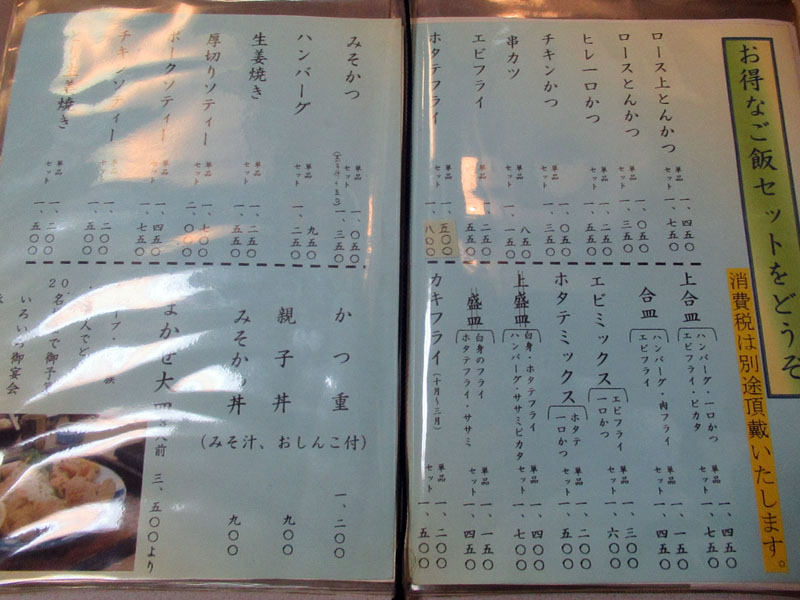 お得なご飯セットをどうぞ
消費税は別途頂戴いたします。
ロース上とんかつ 単品 一、四五〇
セット 一、七五〇
ロースとんかつ 単品 一、〇五〇
セット 一、三五〇
ヒレ一口かつ 単品 一、二五〇
セット 一、五五〇
チキンかつ 単品 一、〇五〇
セット 一、三五〇
串カツ 単品
セット 一、一五〇
エビフライ 単品 一、二五〇
セット 一、五五〇
ホタテフライ 単品 一、五〇〇
セット 一、八〇〇
上合皿 ハンバーグ・一口かつ
エビフライ・ピカタ
単品 一、四五〇
セット 一、七五〇
合皿 ハンバーグ・肉フライ
エビフライ
単品 一、一五〇
セット 一、四五〇
エビミックス エビフライ
一口かつ
単品 一、三〇〇
セット 一、六〇〇
ホタテミックス ホタテ
一口かつ
単品 一、二〇〇
セット 一、五〇〇
上盛皿 白身・ホタテフライ
ハンバーグ・ササミピカタ
単品 一、四〇〇
セット 一、七〇〇
盛皿 白身のフライ
ホタテフライ・ササミ
単品 一、一五〇
セット 一、四五〇
カキフライ (十月〜三月) 単品 一、二〇〇
セット 一、五〇〇
みそかつ 単品 一、〇五〇
セット 一、三五〇
ハンバーグ 単品 九五〇
セット 一、二五〇
生姜焼き 単品 一、二五〇
セット 一、五五〇
厚切りソティー 単品 一、七〇〇
セット
ポークソティー 単品 一、四五〇
セット 一、七五〇
チキンソティー 単品 一、二〇〇
セット 一、五〇〇
焼き 単品 一、二〇〇
セット 一、五〇〇
かつ重 一、二〇〇
親子丼 九〇〇
みそかつ丼 九〇〇
(みそ汁、おしんこ付)
大皿 人前 三、五〇〇より
いろいろ御宴会